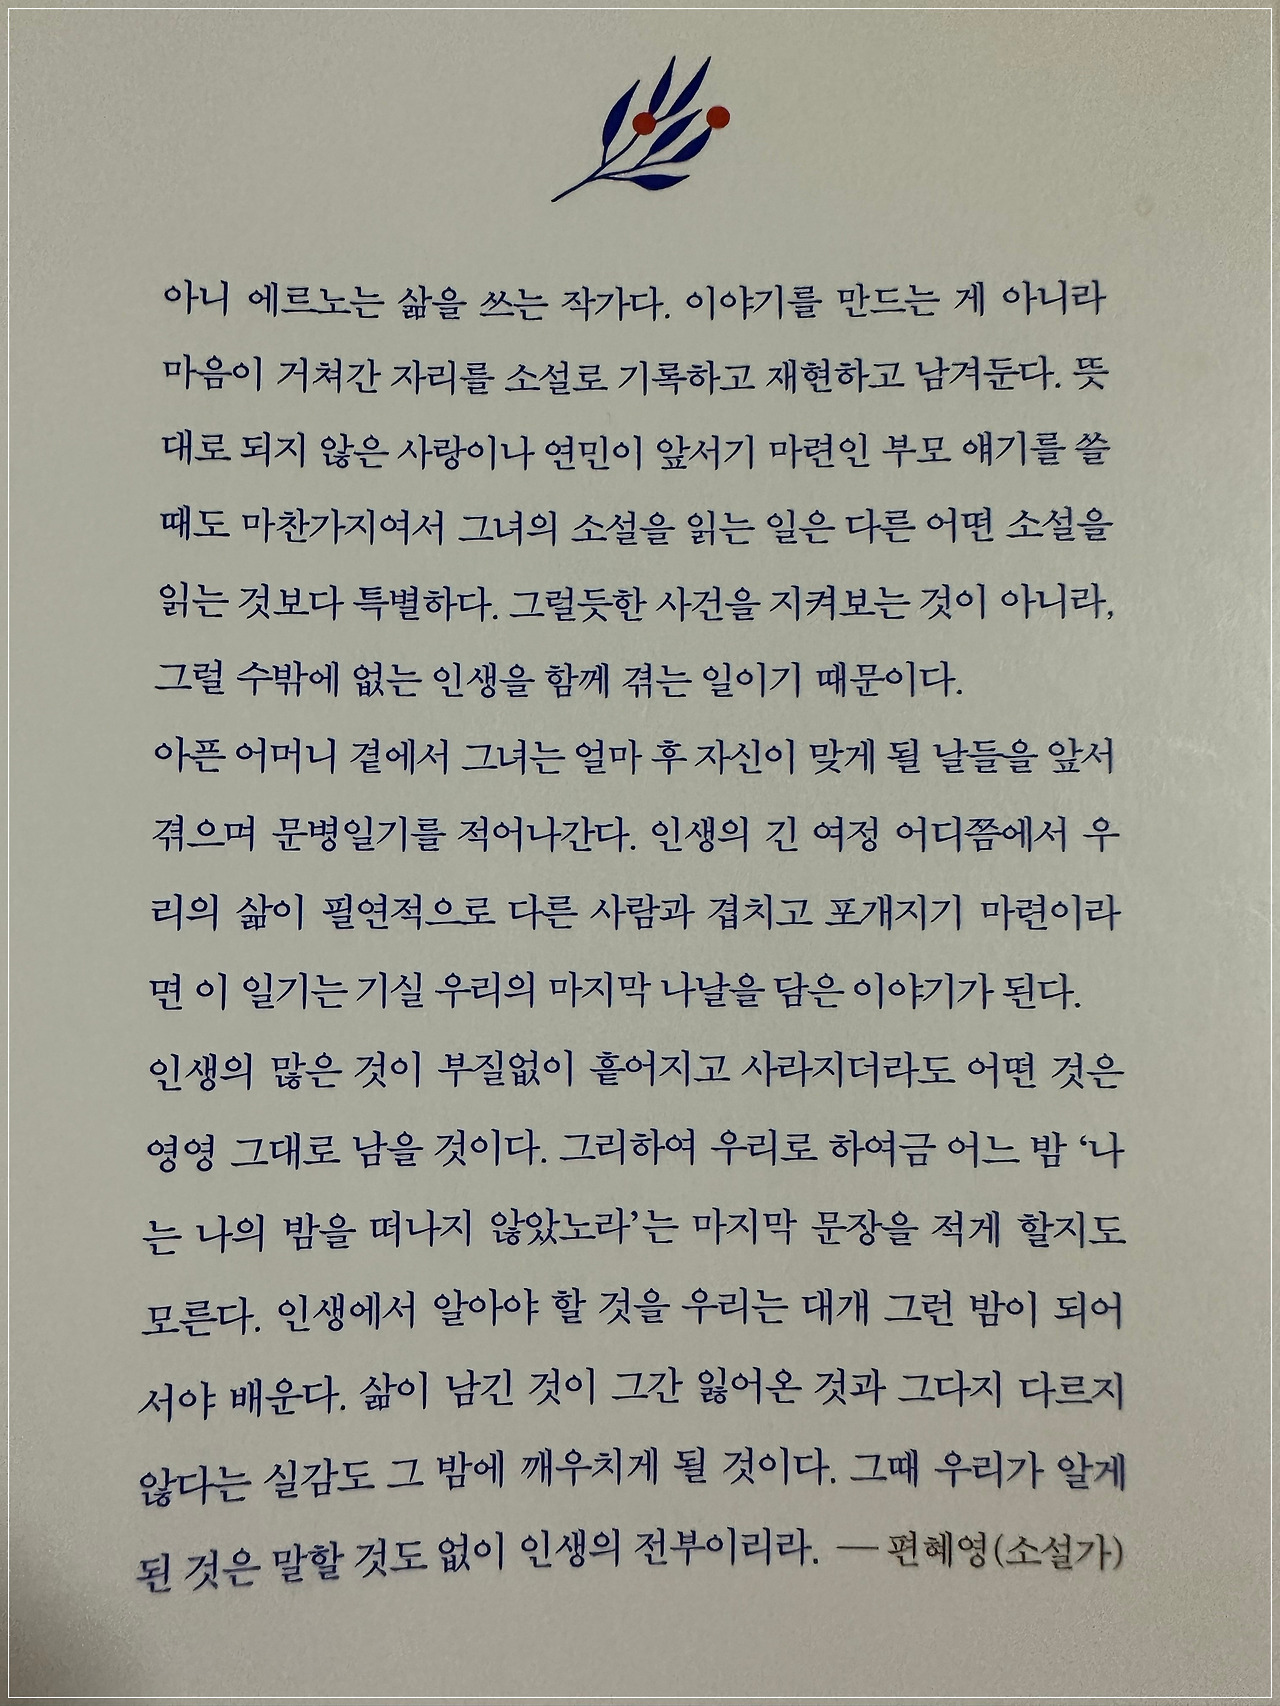 아니 에르노는 삶을 쓰는 작가다. 이야기를 만드는 게 아니라
마음이 거쳐간 자리를 소설로 기록하고 재현하고 남겨둔다. 뜻
대로 되지 않은 사랑이나 연민이 앞서기 마련인 부모 얘기를 쓸
때도 마찬가지여서 그녀의 소설을 읽는 일은 다른 어떤 소설을
읽는 것보다 특별하다. 그럴듯한 사건을 지켜보는 것이 아니라,
그럴 수밖에 없는 인생을 함께 겪는 일이기 때문이다.
아픈 어머니 곁에서 그녀는 얼마 후 자신이 맞게 될 날들을 앞서
겪으며 문병일기를 적어나간다. 인생의 긴 여정 어디쯤에서 우
리의 삶이 필연적으로 다른 사람과 겹치고 포개지기 마련이라
면 이 일기는 기실 우리의 마지막 나날을 담은 이야기가 된다.
인생의 많은 것이 부질없이 흩어지고 사라지더라도 어떤 것은
영영 그대로 남을 것이다. 그리하여 우리로 하여금 어느 밤 ‘나
는 나의 밤을 떠나지 않았노라’는 마지막 문장을 적게 할지도
모른다. 인생에서 알아야 할 것을 우리는 대개 그런 밤이 되어
서야 배운다. 삶이 남긴 것이 그간 잃어온 것과 그다지 다르지
않다는 실감도 그 밤에 깨우치게 될 것이다. 그때 우리가 알게
된 것은 말할 것도 없이 인생의 전부이리라. — 편혜영(소설가)